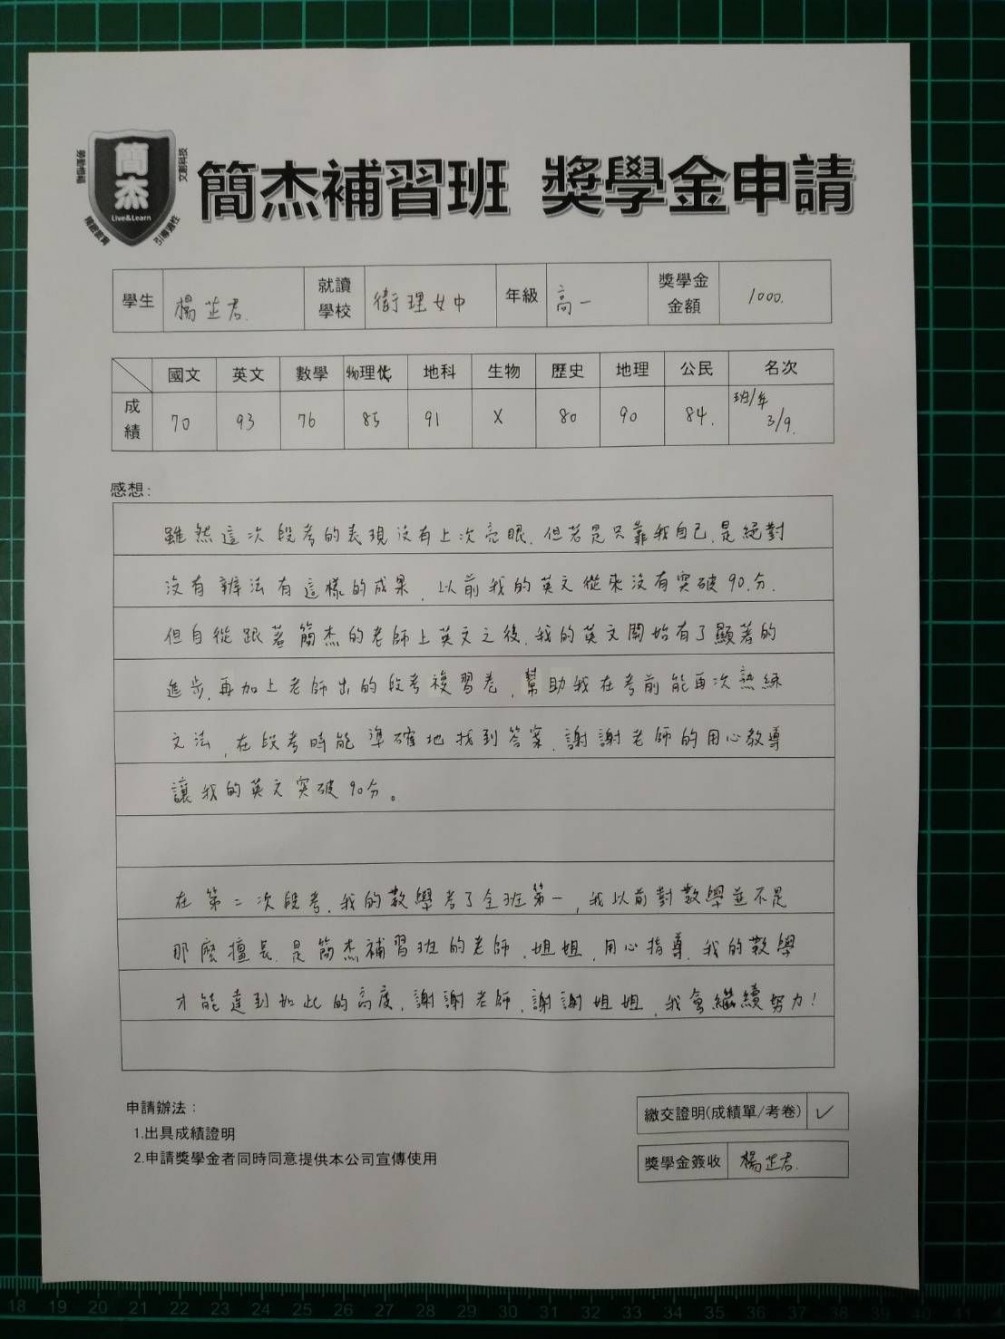 簡杰
Live&Learn
簡杰補習班 獎學金申請
學生 楊芷君. 就讀學校 衛理女中 年級 高一 獎學金金額 1000.
國文 英文 數學 物理化 地科 生物 歷史 地理 公民 名次
成績 70 93 76 85 91 X 80 90 84. 班/年 3/9.
感想:
雖然這次段考的表現沒有上次亮眼,但若是只靠我自己,是絕對
沒有辦法有這樣的成果,以前我的英文從來沒有突破90分.
但自從跟著簡杰的老師上英文之後,我的英文開始有了顯著的
進步,再加上老師出的段考複習卷,幫助我在考前能再次熟練
文法,在段考時能準確地找到答案,謝謝老師的用心教導
讓我的英文突破90分。
在第二次段考,我的數學考了全班第一,我以前對數學並不是
那麼擅長,是簡杰補習班的老師,姐姐,用心指導,我的數學
才能達到如此的高度,謝謝老師,謝謝姐姐,我會繼續努力!
申請辦法:
1.出具成績證明
2.申請獎學金者同時同意提供本公司宣傳使用
繳交證明(成績單/考卷) ✓
獎學金簽收 楊芷君.
18 19 20 21 22 23 24 25 26 27 28 29 30 31 32 33 34 35 36 37 38 39 40 41